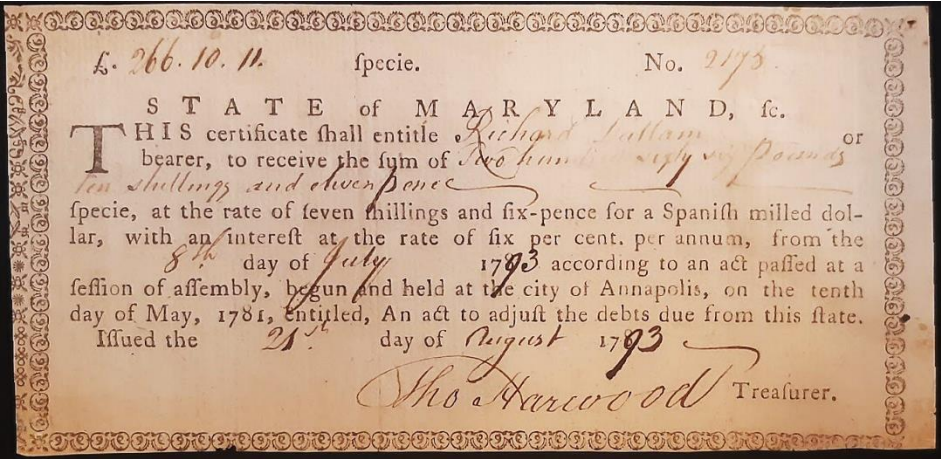 £. 266. 10. 11. ſpecie. No. 2175
STATE of MARYLAND, ſc.
THIS certificate ſhall entitle Richard Dallam or
bearer, to receive the ſum of Two hundred sixty six pounds
ten shillings and eleven pence
ſpecie, at the rate of ſeven ſhillings and ſix-pence for a Spaniſh milled dol-
lar, with an intereſt at the rate of ſix per cent. per annum, from the
8th day of July 1793 according to an act paſſed at a
ſeſſion of aſſembly, begun and held at the city of Annapolis, on the tenth
day of May, 1781, entitled, An act to adjuſt the debts due from this ſtate.
Iſſued the 21st day of August 1793
Tho Harwood Treaſurer.